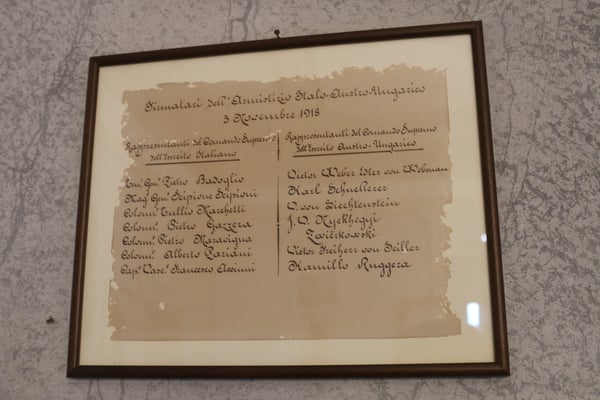 Firmatari dell'Armistizio Italo-Austro-Ungarico
3 Novembre 1918
Rappresentanti del Comando Supremo
dell'Esercito Italiano
Ten. Gen. Pietro Badoglio
Mag. Gen. Scipione Scipioni
Colonn. Tullio Marchetti
Colonn. Pietro Gazzera
Colonn. Pietro Maravigna
Colonn. Alberto Pariani
Cap. Vasc. Francesco Accinni
Rappresentanti del Comando Supremo
dell'Esercito Austro-Ungarico
Victor Weber Edler von Webenau
Karl Schneller
V. von Liechtenstein
J. V. Nyekhegyi
Zwierkowski
Victor Freiherr von Seiller
Kamillo Ruggera